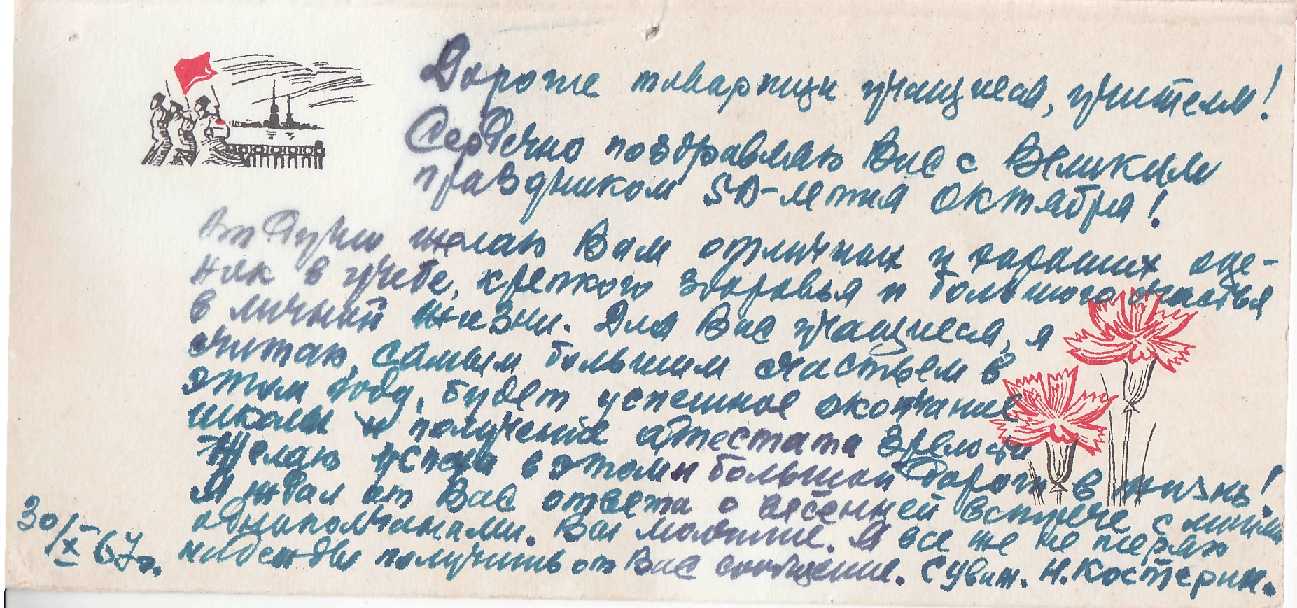 Дорогие товарищи учащиеся, учителя!
Сердечно поздравляю Вас с Великим
праздником 50-летия Октября!
От души желаю Вам отличных и хороших оце-
нок в учебе, крепкого здоровья и большого счастья
в личной жизни. Для Вас учащиеся, я
считаю, самым большим счастьем в
этом году, будет успешное окончание
школы и получение аттестата зрелости
Желаю успеха в этом и большой дороги в жизнь!
Я ждал от Вас ответа о весенней встрече с моими
однополчанами. Вы молчите. Я все же не теряю
надежды получить от Вас сообщение. С уваж. Н. Костерин.
30/X-67г.